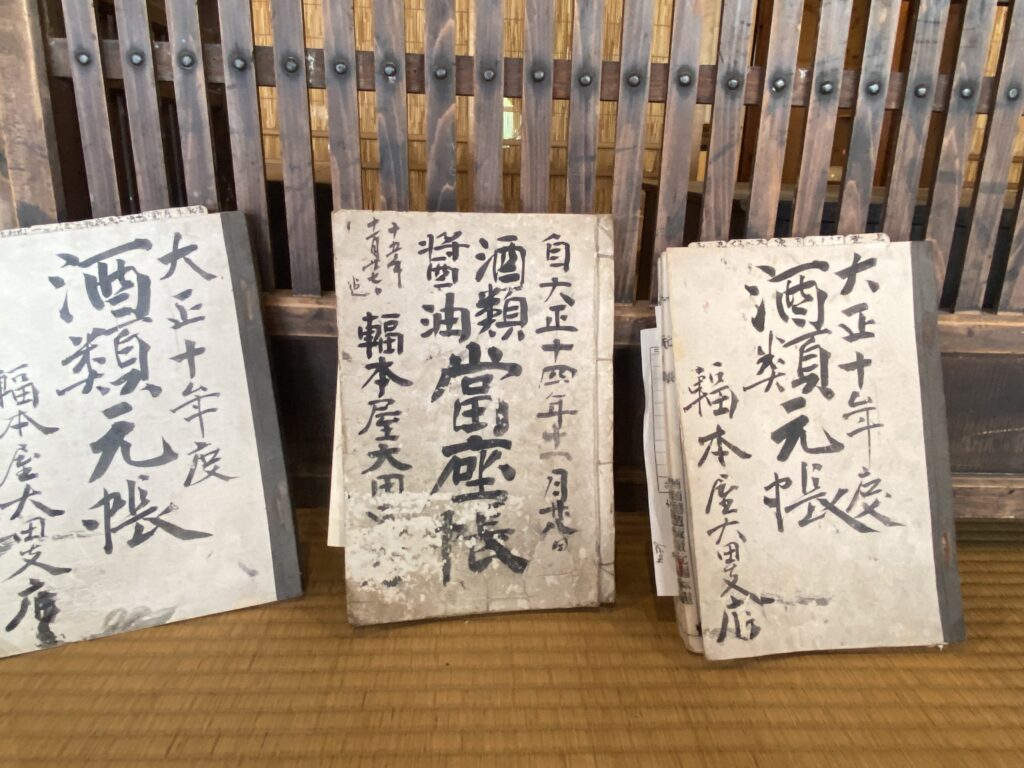 大正十年度
酒類元帳
輻本屋大田支店
自大正十四年十一月
酒類
醬油
當座帳
輻本屋大田
十五年
迄
大正十年度
酒類元帳
輻本屋大田支店